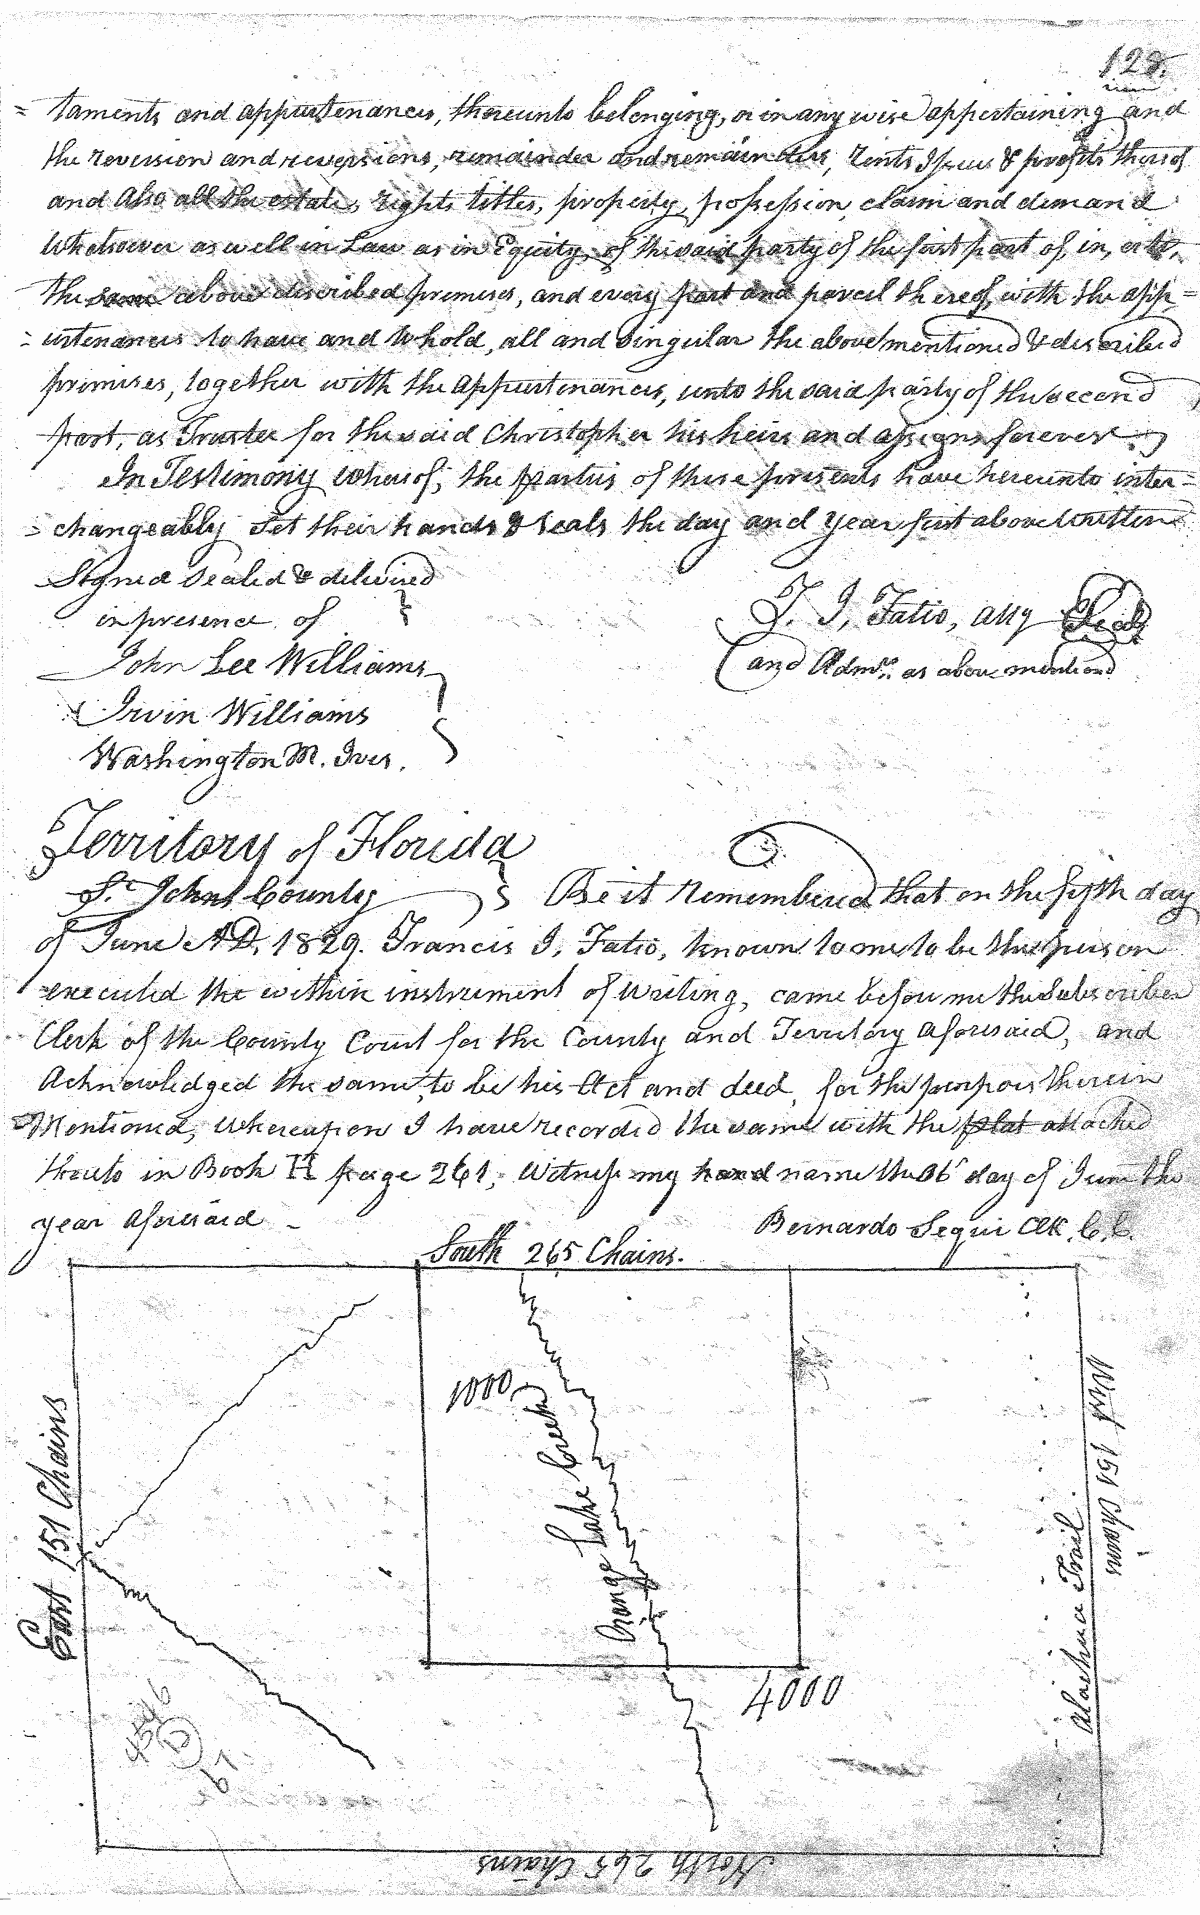 128.
= taments and appurtenances, thereunto belonging, or in any wise appertaining and
the reversion and reversions, remainder and remainders, rents Issues & profits thereof
and Also all the estate, rights titles, property, possession claim and demand
Whatsoever as well in Law as in Equity, of the said party of the first part of, in, or to,
the same above described premises, and every part and parcel thereof, with the app =
= urtenances to have and to hold, all and Singular the above mentioned & described
premises, together with the appurtenances, unto the said party of the second
part, as Trustee for the said Christopher his heirs and assigns forever.
In Testimony whereof, the parties of these presents have hereunto inter =
= changeably Set their hands & Seals the day and year first above written
Signed Sealed & delivered
in presence of
John Lee Williams
Irvin Williams
Washington M. Ives.
F. J. Fatio, atty Seal
(and Admr. as above mentioned
Territory of Florida
St. Johns County } Be it remembered that on the fifth day
of June A.D. 1829. Francis J. Fatio, known to me to be the person
executed the within instrument of writing, came before me the Subscriber
Clerk of the County Court for the County and Territory aforesaid, and
Acknowledged the same, to be his Act and deed, for the purposes therein
Mentioned, whereupon I have recorded the same with the plat attached
thereto in Book H page 261, Witness my hand name the 06 day of June the
year aforesaid _
Bernardo Segui Clk. C. C.
South 265 Chains.
East 151 Chains
1000
Orange Lake Creek
West 151 Chains
Alachua Trail.
4000
North 265 Chains